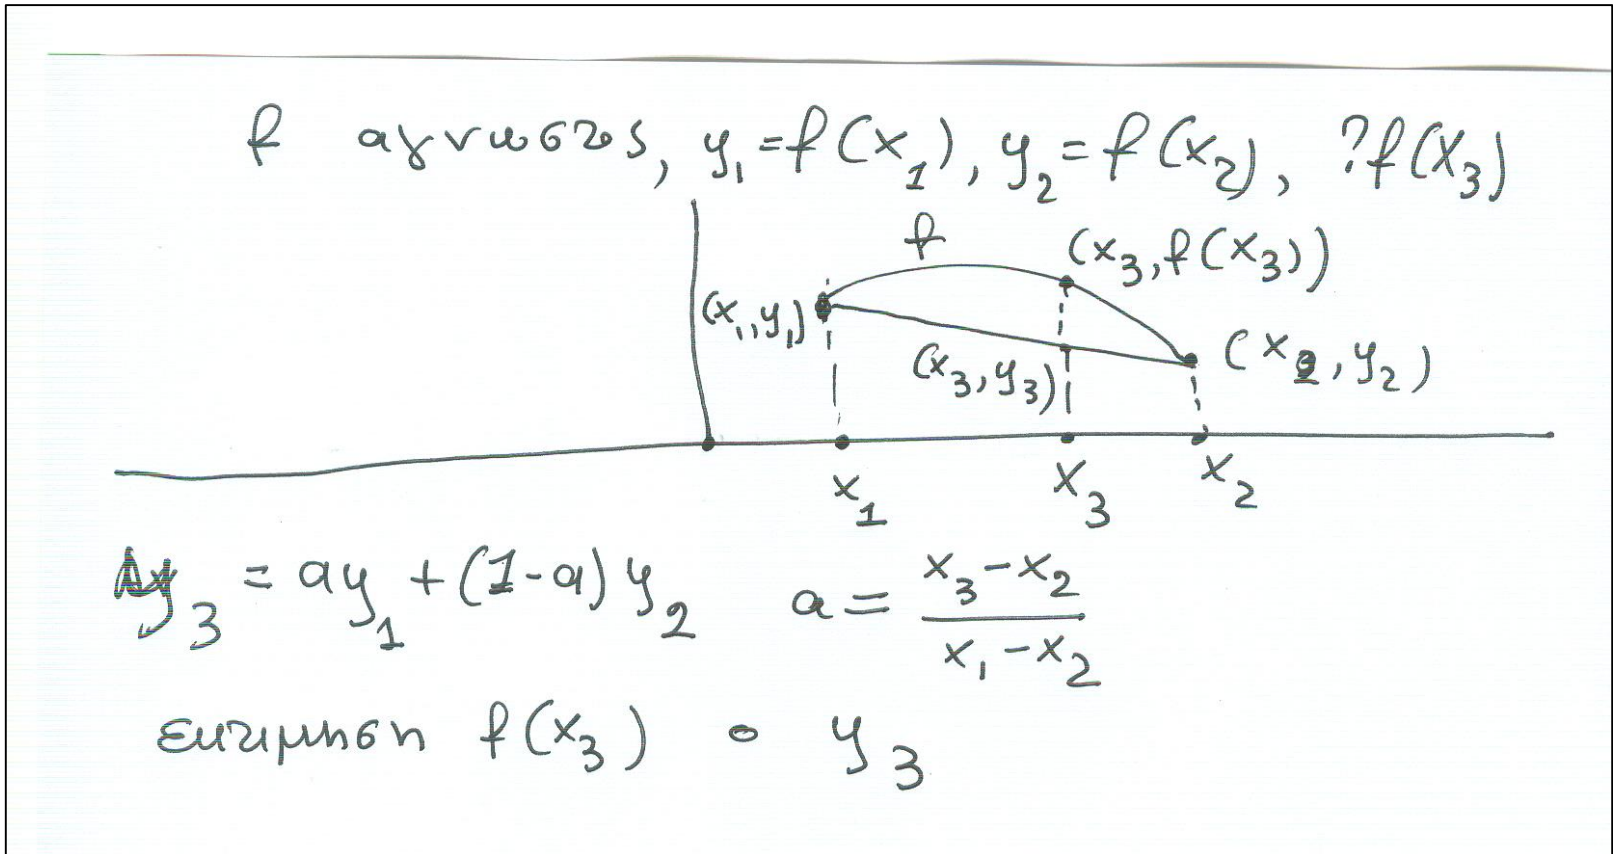 f αγνωστος, y₁=f(x₁), y₂=f(x₂), ?f(x₃)
f
(x₃, f(x₃))
(x₁, y₁)
(x₃, y₃)
(x₂, y₂)
x₁ x₃ x₂
y₃ = ay₁ + (1-a) y₂ a = (x₃-x₂)/(x₁-x₂)
εκτιμηση f(x₃) ο y₃